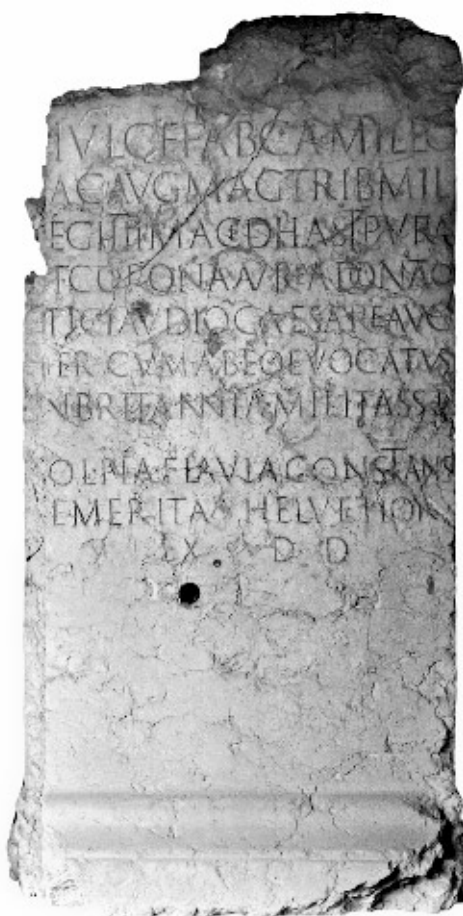 IVLCFFABCAMILLO
ACAVGMAGTRIBMIL
EGIIIIMACEDHASTPVRA
TCORONAAVREADONATO
TICLAVDIOCAESAREAVG
TERCVMABEOEVOCATVS
NBRITANNIAMILITASSET
COLPIAFLAVIACONSTANS
EMERITA HELVETIOR
EX D D